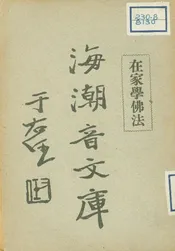 230.8
在家學佛法
海潮音文庫
于右任